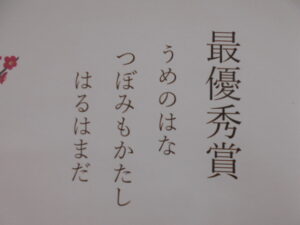 最優秀賞
うめのはな
つぼみもかたし
はるはまだ